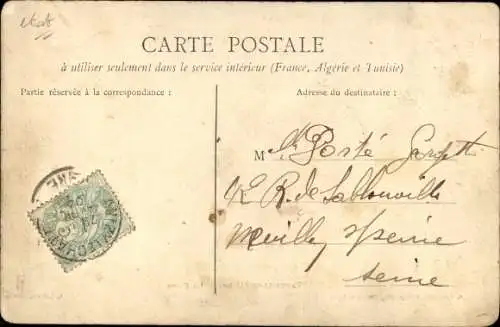 CARTE POSTALE
à utiliser seulement dans le service intérieur (France, Algérie et Tunisie)
Partie réservée à la correspondance :
Adresse du destinataire :
M
R. de Sablonville
Neuilly s/Seine
Seine